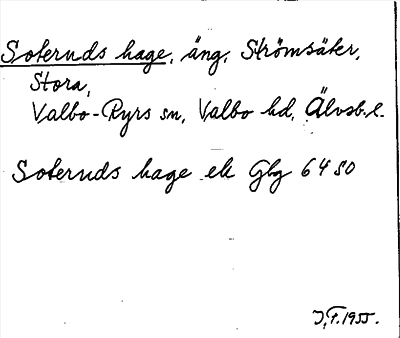 Soteruds hage, äng, Strömsäter,
Stora,
Valbo-Ryrs sn, Valbo hd, Älvsb.l.
Soteruds hage ek Gbg 6480
J.F. 1955.